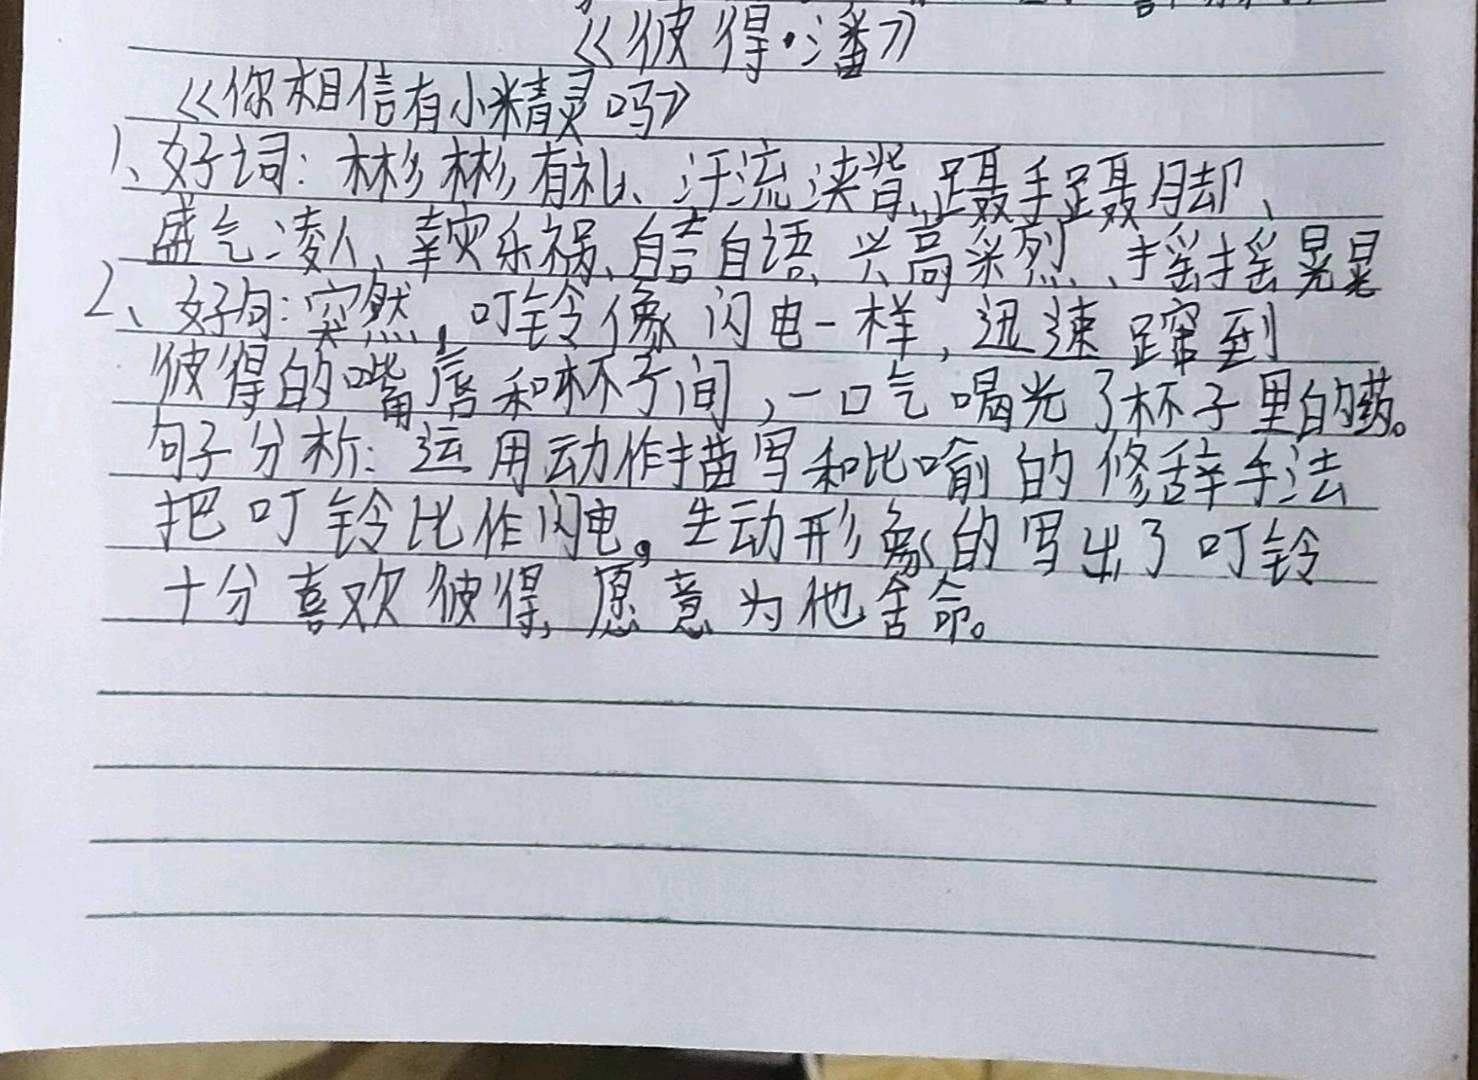 《彼得·潘》
《你相信有小精灵吗》
1、好词：彬彬有礼、汗流浃背、蹑手蹑脚、
盛气凌人、幸灾乐祸、自言自语、兴高采烈、摇摇晃晃
2、好句：突然，叮铃像闪电一样，迅速蹿到
彼得的嘴唇和杯子间，一口气喝光了杯子里的药。
句子分析：运用动作描写和比喻的修辞手法
把叮铃比作闪电。生动形象的写出了叮铃
十分喜欢彼得，愿意为他舍命。